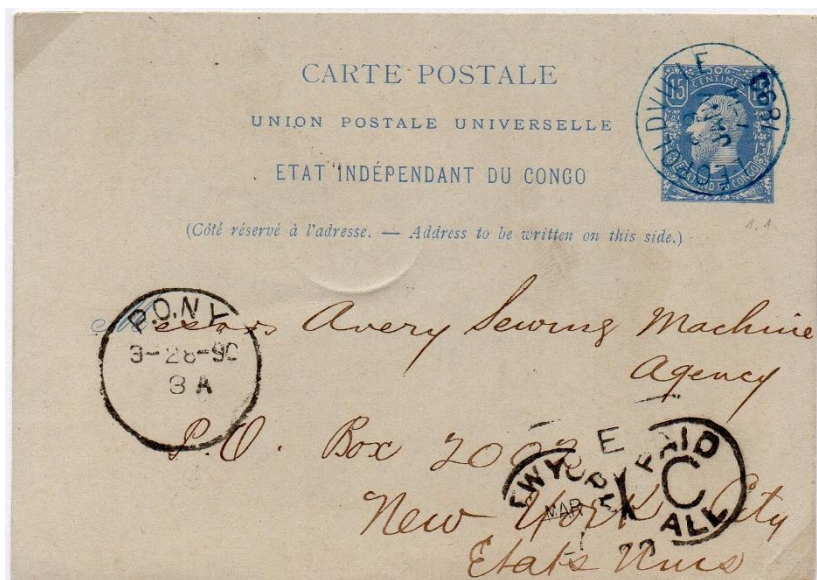 CARTE POSTALE
UNION POSTALE UNIVERSELLE
ETAT INDÉPENDANT DU CONGO
(Côté réservé à l'adresse. — Address to be written on this side.)
15 CENTIMES
LEOPOLDVILLE
P.O.N.Y.
3-28-90
8 A
Messrs Avery Sewing Machine
Agency
P.O. Box 2002
New York City
Etats Unis
PAID
C
ALL
MAR
1.1